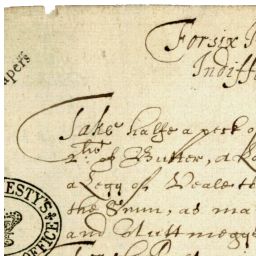 apers
Forsix
Indiff
Take halfe a peck o
2ths of Butter, a
a Legg of Veale
the Srun, as ma
and Nuttmegg
ESTY'S
OFFICE